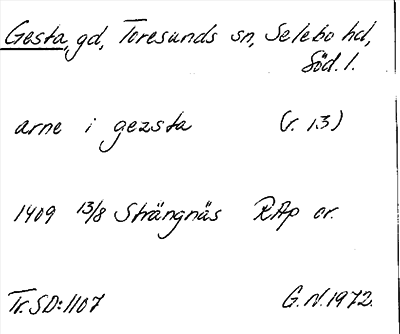 Gesta, gd, Toresunds sn, Selebo hd,
Söd. l.
arne i gezsta (r. 13)
1409 13/8 Strängnäs RAp or.
Tr. SD: 1107 G.N. 1972.